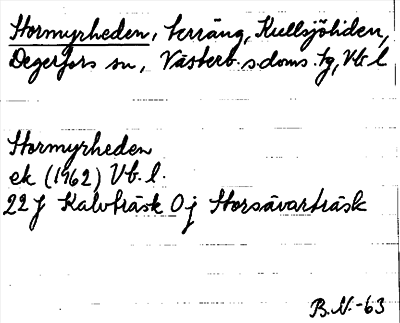 Stormyrheden, terräng, Kullsjöliden,
Degerfors sn, Västerb.sdoms. tg, Vb. l
Stormyrheden
ek (1962) Vb. l.
22 J Kalvträsk 0 j Storsävarträsk
B.N.-63